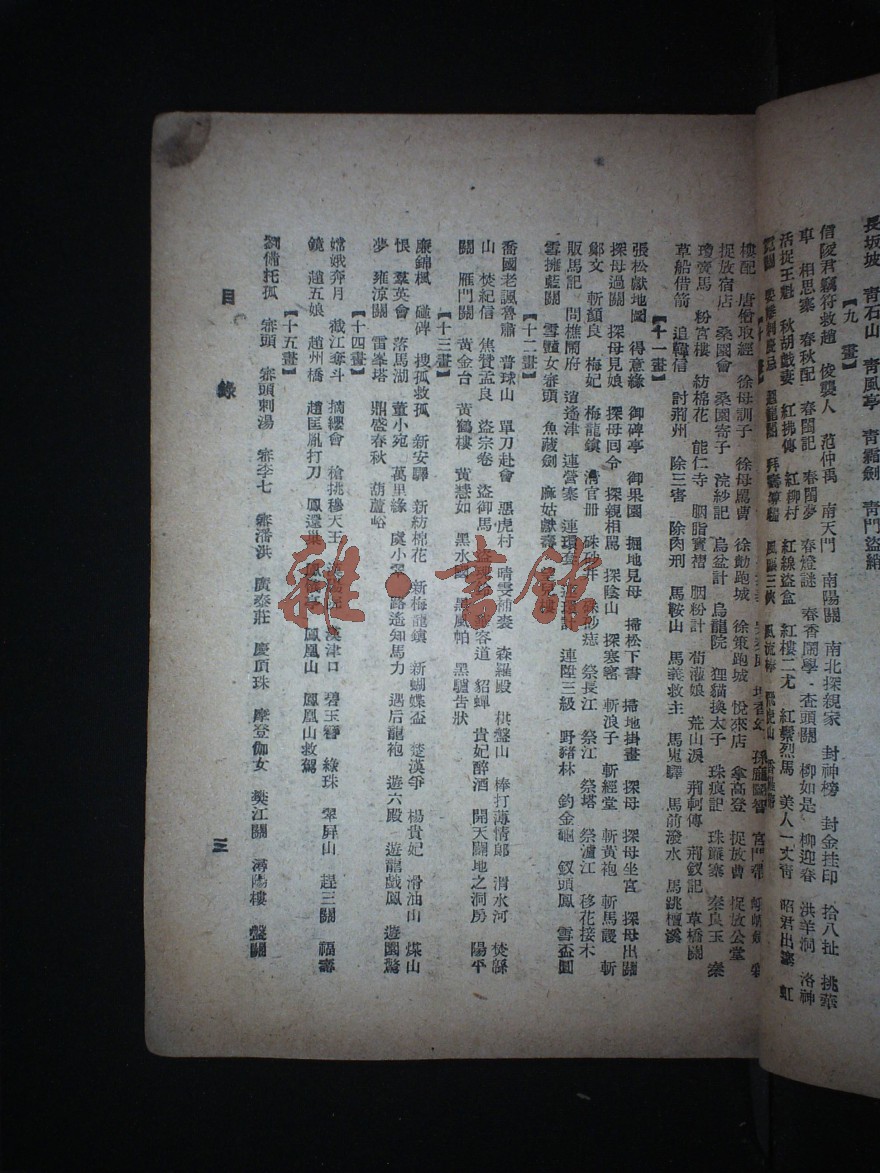 長坂坡 青石山 青風亭 青霜劍 青門盜綃
【九畫】
信陵君竊符救趙 俊襲人 范仲禹 南天門 南陽關 南北探親家 封神榜 封金挂印 拾八扯 挑華
車 相思寨 春秋配 春閨記 春閨夢 春燈謎 春香鬧學 查頭關 柳如是 柳迎春 洪羊洞 洛神
活捉王魁 秋胡戲妻 紅拂傳 紅柳村 紅線盜盒 紅樓二尤 紅鬃烈馬 美人一丈青 昭君出塞 虹
霓關 風塵三俠
【十畫】
孫龐鬭智 宮門帶
樓配 唐僧取經 徐母訓子 徐母罵曹 徐勳跑城 徐策跑城 悅來店 拿高登 捉放曹 捉放公堂
捉放宿店 桑園會 桑園寄子 浣紗記 烏盆計 烏龍院 狸貓換太子 珠痕記 珠簾寨 秦良玉 秦
瓊賣馬 粉宮樓 紡棉花 能仁寺 胭脂寶褶 胭粉計 荀灌娘 荒山淚 荊軻傳 荊釵記 草橋關
草船借箭 追韓信 討荆州 除三害 除肉刑 馬鞍山 馬義救主 馬嵬驛 馬前潑水 馬跳檀溪
【十一畫】
張松獻地圖 得意緣 御碑亭 御果園 掘地見母 掃松下書 掃地掛畫 探母 探母坐宮 探母出關
探母過關 探母見娘 探母回令 探親相罵 探陰山 探塞密 斬浪子 斬經堂 斬黃袍 斬馬謖 斬
鄭文 斬顏良 梅妃 梅龍鎮 清官册 硃砂井 硃砂痣 祭長江 祭江 祭塔 祭瀘江 移花接木
販馬記 問樵鬧府 逍遙津 連營寨 連環套 連環計 連陞三級 野豬林 釣金龜 釵頭鳳 雪盃圓
雪擁藍關 雪豔女審頭 魚藏劍 麻姑獻壽
【十二畫】
喬國老諷魯肅 普球山 單刀赴會 惡虎村 晴雯補裘 森羅殿 棋盤山 棒打薄情郎 渭水河 焚緜
山 焚紀信 焦贊孟良 盜宗卷 盜御馬 盜魂鈴 華容道 貂蟬 貴妃醉酒 開天闢地之洞房 陽平
關 雁門關 黃金台 黃鶴樓 黃慧如 黑水國 黑風帕 黑驢告狀
【十三畫】
廉錦楓 碰碑 搜孤救孤 新安驛 新紡棉花 新梅龍鎮 新蝴蝶盃 楚漢爭 楊貴妃 滑油山 煤山
恨 羣英會 落馬湖 董小宛 萬里緣 虞小翠 路遙知馬力 遇后龍袍 遊六殿 遊龍戲鳳 遊園驚
夢 雍涼關 雷峯塔 鼎盛春秋 葫蘆峪
【十四畫】
嫦娥奔月 截江奪斗 摘纓會 槍挑穆天王 漢津口 碧玉簪 綠珠 翠屏山 趕三關 福壽
鏡 趙五娘 趙州橋 趙匡胤打刀 鳳還巢 鳳儀亭 鳳凰山 鳳凰山救駕
【十五畫】
劉備托孤 審頭 審頭刺湯 審李七 審潘洪 廣泰莊 慶頂珠 摩登伽女 樊江關 潯陽樓 盤關
目錄 三
雜·書館